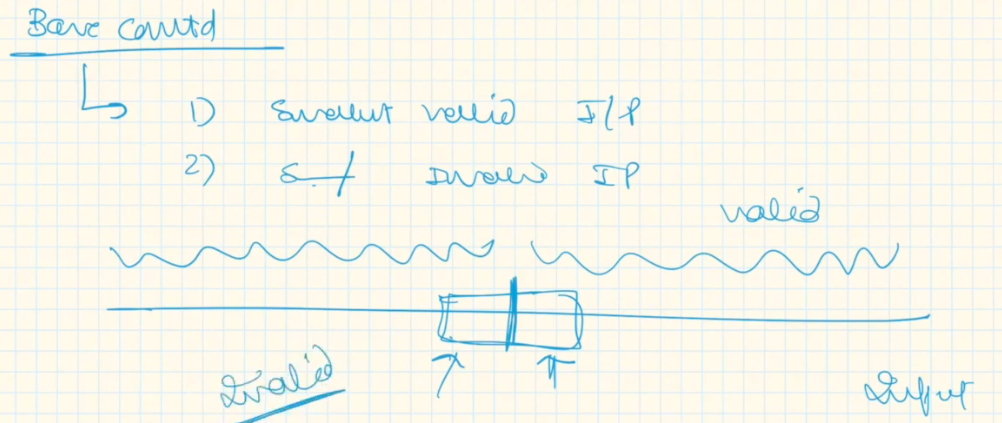 Base contd
1) Smallest valid I/P
2) S-l Invalid IP
valid
Invalid
Input